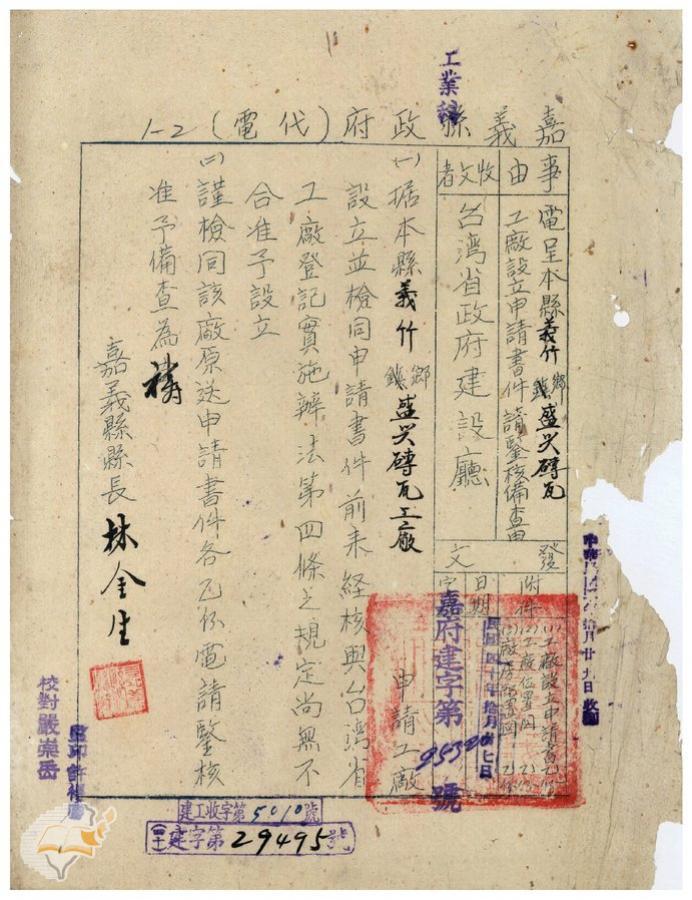 工業科
嘉義縣政府(代電)1-2
事由
電呈本縣義竹鄉鎮盛興磚瓦
工廠設立申請書件請鑒核備查由
收文者
台湾省政府建設廳
發文
附件
(1)工廠設立申請書乙份
(2)工廠位置図 乙份
(3)廠房佈置図 乙份
日期
民國四十年拾月 七日
字
嘉府建字第95320號
(一)据本縣義竹鄉鎮盛兴磚瓦工廠申請工廠
設立並檢同申請書件前來経核與台湾省
工廠登記實施辦法第四條之規定尚無不
合准予設立
(二)謹檢同該廠原送申請書件各乙份電請鑒核
准予備查為禱
嘉義縣縣長 林金生
校對嚴崇岳
監印許
建工收字第5010號
(四十)建字第29495號